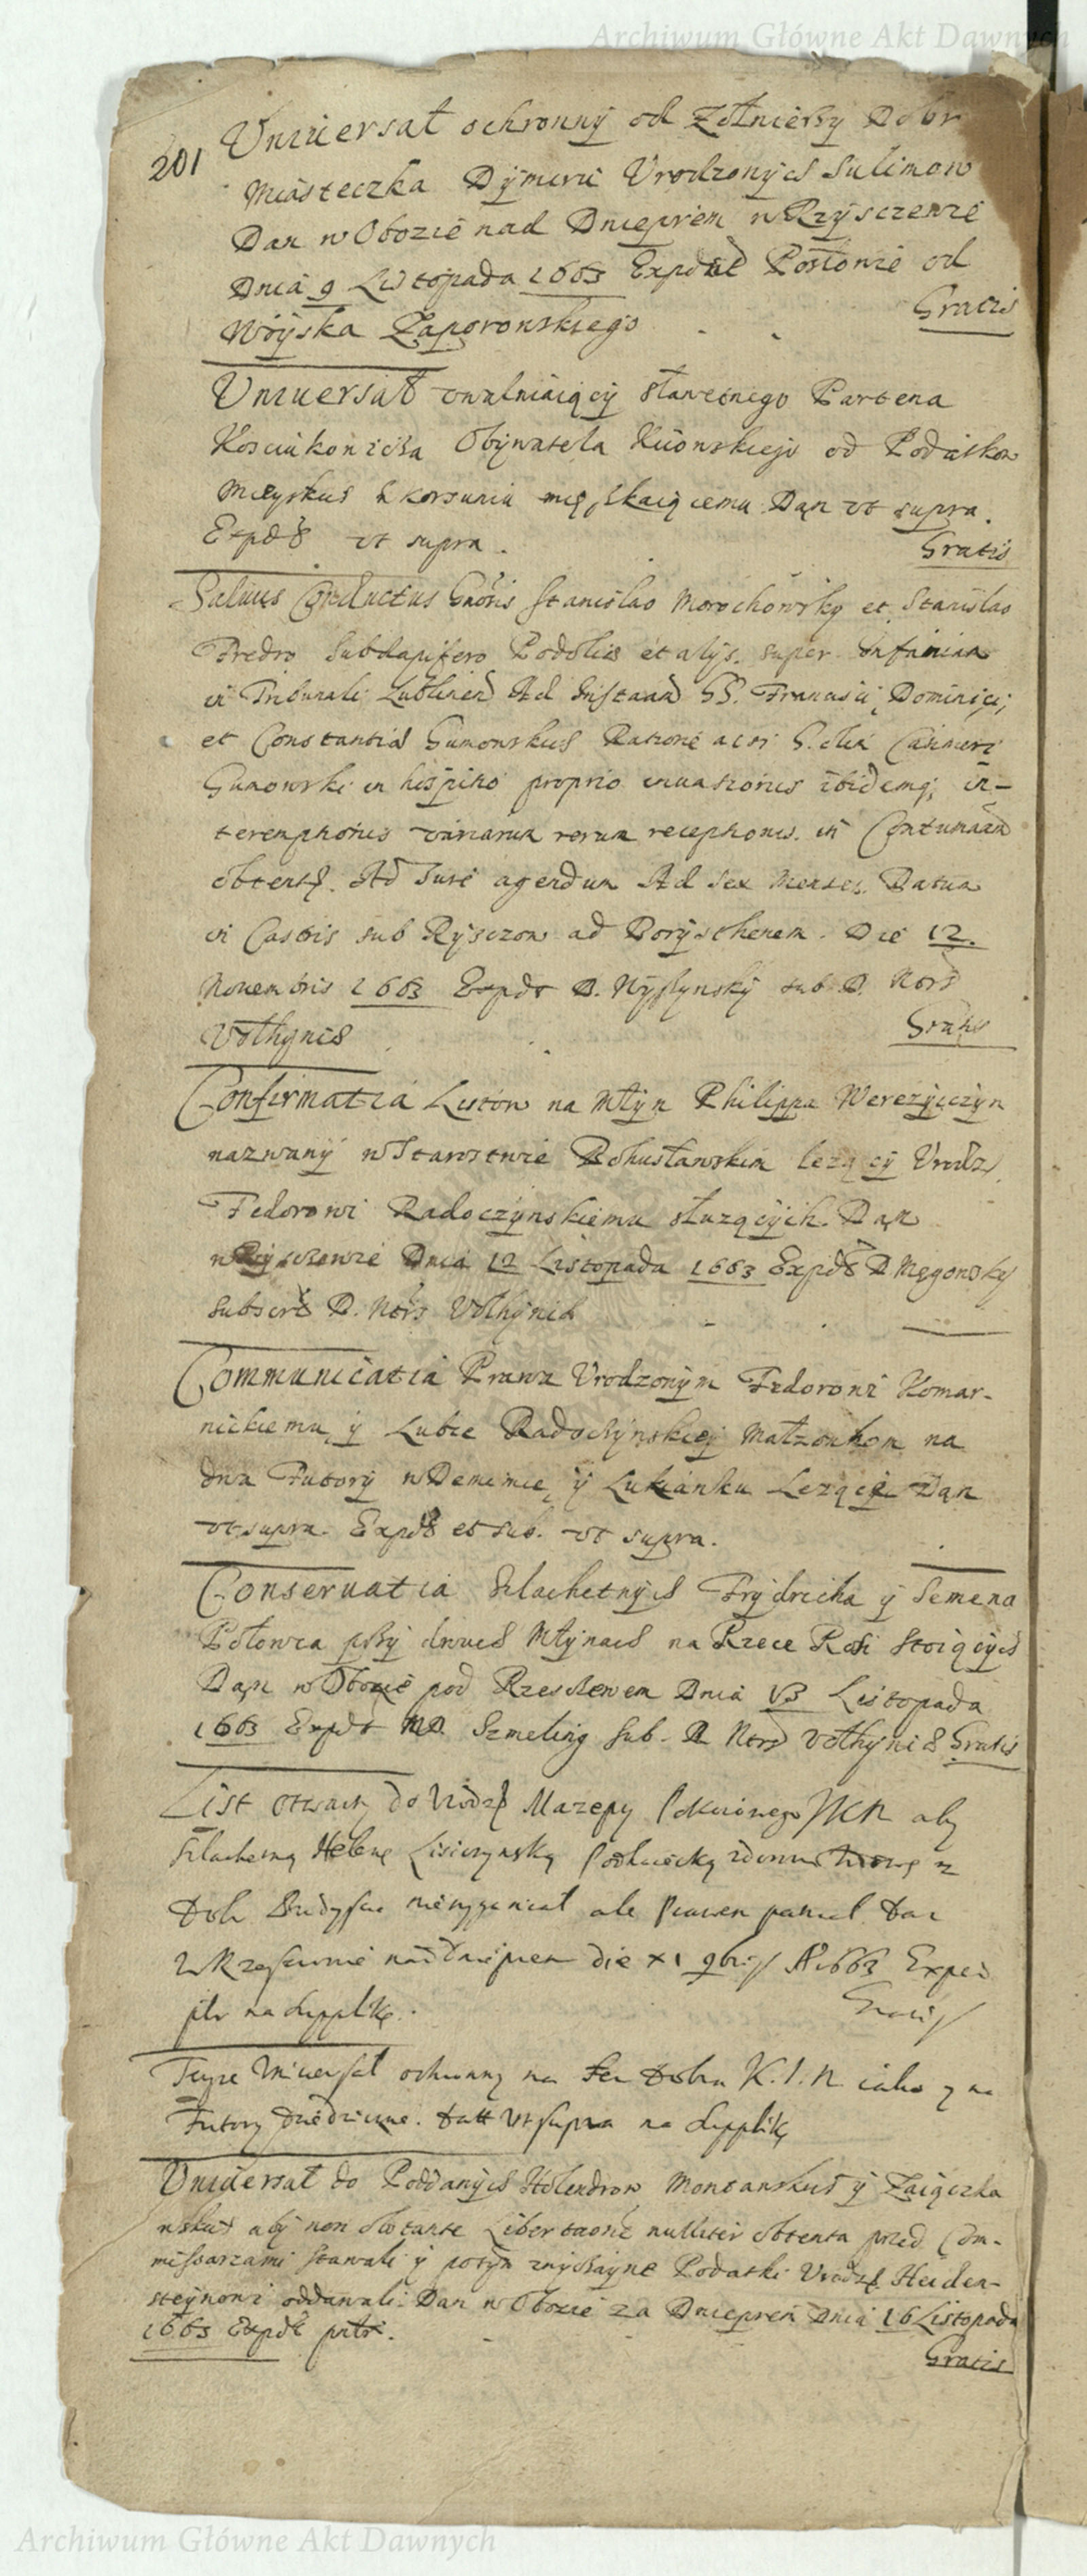 Archiwum Główne Akt Dawnych
201
Uniwersał ochronny od Zołnierzy Dobr
Miasteczka Dymiru Urodzonych Sulimow
Dan w Obozie nad Dnieprem w Rzysczewie
Dnia 9 Listopada 1663 Expdt Posłowie od
Woyska Zaporowskiego Gratis
Uniuersał uwalniaiący sławetnego Partena
Obywatela Kiiowskiego od Podatkow
Mieyskich w Korsuniu mięszkaiącemu Dan ut supra.
Expdt ut supra. Gratis
Saluus Conductus Gnoris Stanislao Morochowsky et Stanislao
Fredro Subdapifero Podoliæ et alys. super Infamiam
in Tribunali Lublinen Ad Instaan GG. Francisci, Dominici,
et Constantia Gumowskich Ratione acti G. olim Casimiri
Gumowski in hospitio proprio inuasionis ibidemq; in-
teremptionis variarum rerum receptionis in Contumaam
obtent. Ad Iure agendum Ad Sex Menses. Datum
in Castris sub Rysczow ad Borysthenem. Die 12.
Nouembris 1663 Expdt D. sub D. Nors
Volhyniæ Gratis
Confirmatia Listow na Młyn Philippa
nazwany w Starostwie Bohusławskim lezący Urodz.
Fedorowi Radoczynskiemu słuzących. Dan
w Rzysczewie Dnia 12 Listopada 1663 Expdt D.
subscr D. Nors Volhyniæ
Communicatia Prawa Urodzonym Fedorowi Komar-
nickiemu y Lubie Radoczynskiey Małzonkom na
dwa Futory w y Lukianku Lezące Dan
ut supra. Expdt et sub. ut supra.
Conseruatia Szlachetnych Frydricha y Semena
Połowca przy dwuch Młynach na Rzece Rosi stoiących
Dan w Obozie pod Rzesczewem Dnia 13 Listopada
1663 Expdt MD. Szmeling Sub. R Nors Volhyniæ Gratis
List otwarty do Urodz Mazepy Pokoiowego JKM aby
Szlachetną Helenę Lisiczynską
Dobr nie wyganiał ale Prawem Dat
w Rzesczewie nad Dnieprem die XI 9bris A 1663 Exped
na Supplikę. Gratis
Teyze Uniuersał ochronny na Dobra K.J.M iako y na
Futory Dziedziczne. Datt ut supra na Supplikę
Uniuersał do Poddanych Holendrow Montanskich y Zaiączka
wskich aby non obstante Libertaone nulliter obtenta przed Com-
missarzami stawali y potym zwyczayne Podatki Urodz Heiden-
steynowi oddawali. Dan w Obozie za Dnieprem Dnia 16 Listopada
1663 Expdt
Gratis
Archiwum Główne Akt Dawnych